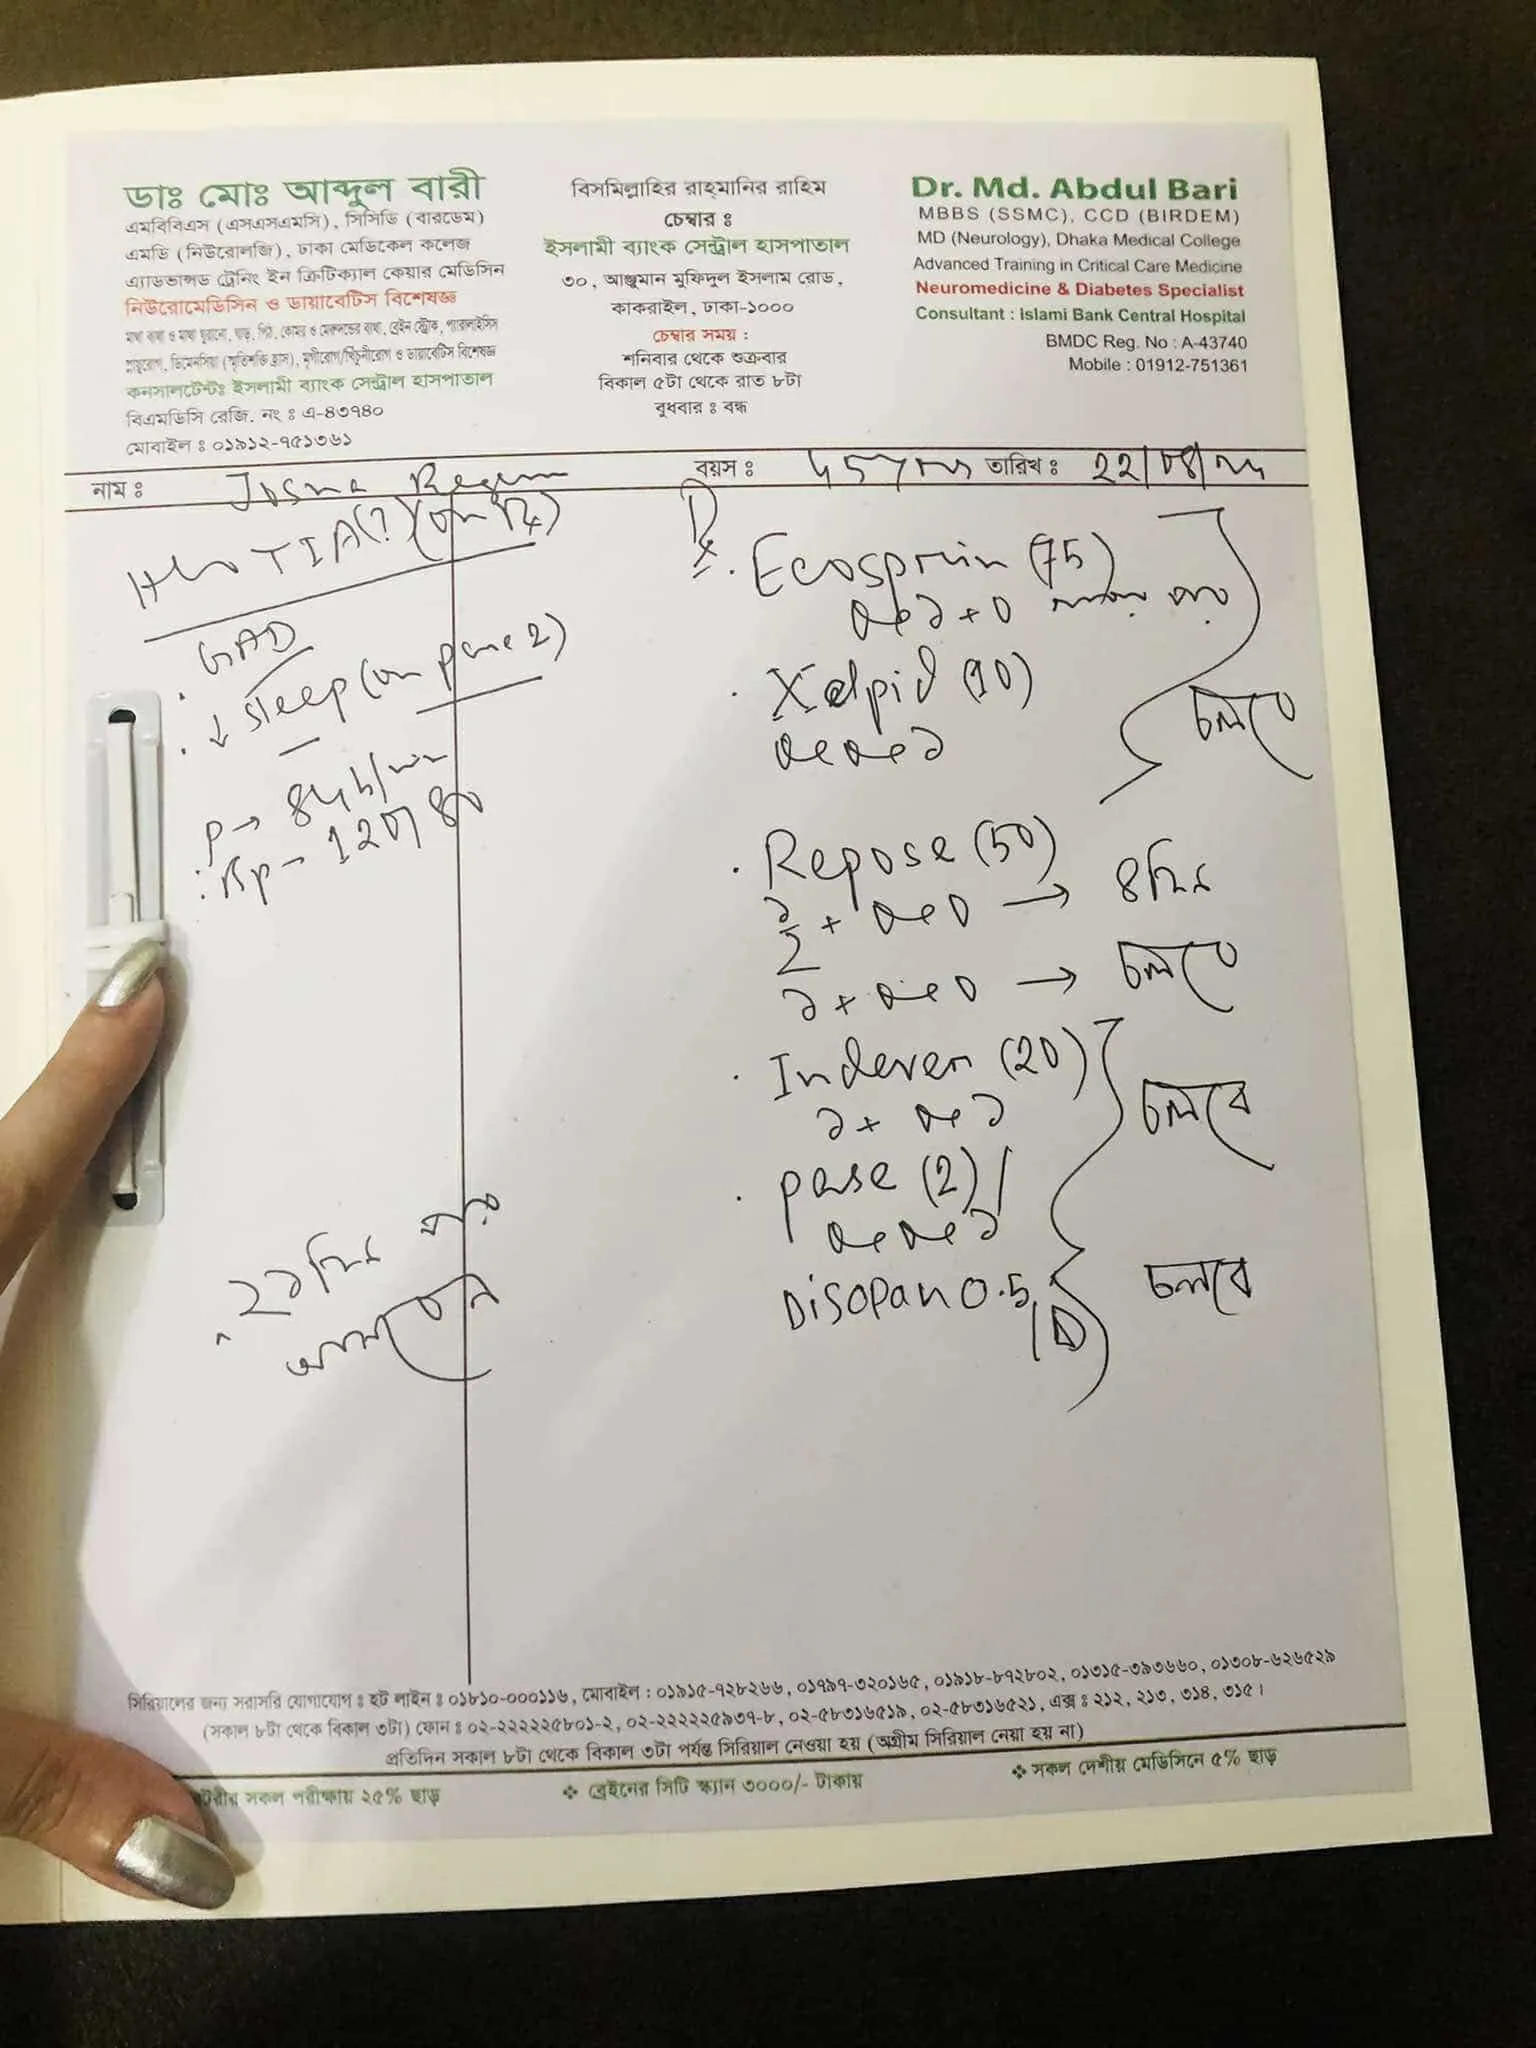 ডাঃ মোঃ আব্দুল বারী
এমবিবিএস (এসএসএমসি), সিসিডি (বারডেম)
এমডি (নিউরোলজি), ঢাকা মেডিকেল কলেজ
এ্যাডভান্সড ট্রেনিং ইন ক্রিটিক্যাল কেয়ার মেডিসিন
নিউরোমেডিসিন ও ডায়াবেটিস বিশেষজ্ঞ
মাথা ব্যথা ও মাথা ঘুরানো, ঘাড়, পিঠ, কোমর ও মেরুদন্ডের ব্যথা, ব্রেইন স্ট্রোক, প্যারালাইসিস
স্নায়ুরোগ, ডিমেনসিয়া (স্মৃতিশক্তি হ্রাস), মৃগীরোগ/খিঁচুনীরোগ ও ডায়াবেটিস বিশেষজ্ঞ
কনসালটেন্টঃ ইসলামী ব্যাংক সেন্ট্রাল হাসপাতাল
বিএমডিসি রেজি. নং ঃ এ-৪৩৭৪০
মোবাইল ঃ ০১৯১২-৭৫১৩৬১
বিসমিল্লাহির রাহ্মানির রাহিম
চেম্বার ঃ
ইসলামী ব্যাংক সেন্ট্রাল হাসপাতাল
৩০, আঞ্জুমান মুফিদুল ইসলাম রোড,
কাকরাইল, ঢাকা-১০০০
চেম্বার সময় :
শনিবার থেকে শুক্রবার
বিকাল ৫টা থেকে রাত ৮টা
বুধবার ঃ বন্ধ
Dr. Md. Abdul Bari
MBBS (SSMC), CCD (BIRDEM)
MD (Neurology), Dhaka Medical College
Advanced Training in Critical Care Medicine
Neuromedicine & Diabetes Specialist
Consultant : Islami Bank Central Hospital
BMDC Reg. No : A-43740
Mobile : 01912-751361
নাম ঃ Josna Begum বয়স ঃ 45 তারিখ ঃ 22/08/
H/O TIA(?)
GAD
↓ sleep (on pase 2)
P → 84b/min
Bp → 120/80
২১ দিন পর
আসবেন
Rx
Ecosprin (75)
০+১+০
Xelpid (10)
০+০+১
চলবে
Repose (50)
১/২ + ০+০ → ৪ দিন
১ + ০+০ → চলবে
Indever (20)
১ + ০+১
চলবে
pase (2) /
০+০+১
Disopan 0.5
চলবে
সিরিয়ালের জন্য সরাসরি যোগাযোগ ঃ হট লাইন ঃ ০১৮১০-০০০১১৬, মোবাইল : ০১৯১৫-৭২৮২৬৬, ০১৭৯৭-৩২০১৬৫, ০১৯১৮-৮৭২৮০২, ০১৩১৫-৩৯৩৬৬০, ০১৩০৮-৬২৬৫২৯
(সকাল ৮টা থেকে বিকাল ৩টা) ফোন ঃ ০২-২২২২২৫৮০১-২, ০২-২২২২২৫৯৩৭-৮, ০২-৫৮৩১৬৫১৯, ০২-৫৮৩১৬৫২১, এক্স ঃ ২১২, ২১৩, ৩১৪, ৩১৫।
প্রতিদিন সকাল ৮টা থেকে বিকাল ৩টা পর্যন্ত সিরিয়াল নেওয়া হয় (অগ্রীম সিরিয়াল নেয়া হয় না)
সকল পরীক্ষায় ২৫% ছাড় ❖ ব্রেইনের সিটি স্ক্যান ৩০০০/- টাকায় ❖ সকল দেশীয় মেডিসিনে ৫% ছাড়